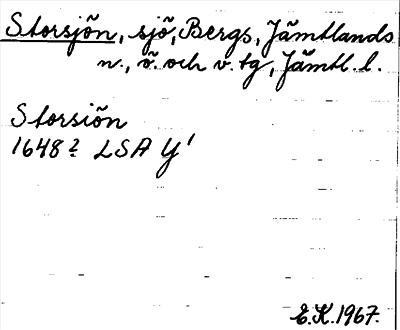 Storsjön, sjö, Bergs, Jämtlands
n., ö. och v. tg, Jämtl. l.
Storsiön
1648? LSA Y¹
E.K. 1967.